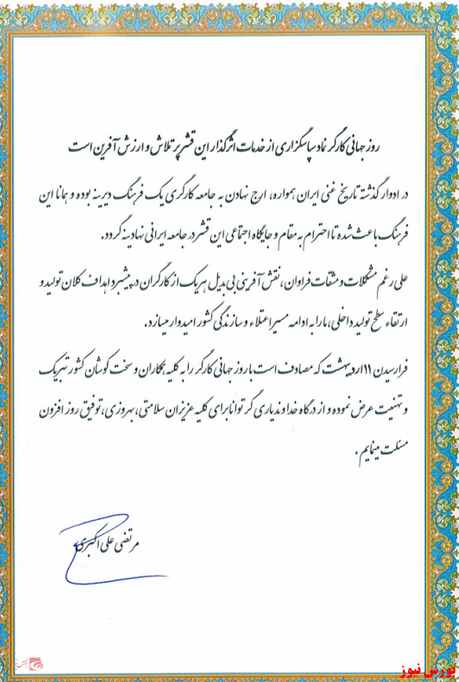 روز جهانی کارگر نماد سپاسگزاری از خدمات اثرگذار این قشر پر تلاش و ارزش آفرین است
در ادوار گذشته تاریخ غنی ایران همواره، ارج نهادن به جامعه کارگری یک فرهنگ دیرینه بوده و همانا این
فرهنگ باعث شده تا احترام به مقام و جایگاه اجتماعی این قشر در جامعه ایرانی نهادینه گردد.
علی رغم مشکلات و مشقات فراوان، نقش آفرینی بی بدیل هر یک از کارگران در پیشبرد اهداف کلان تولید و
ارتقاء سطح تولید داخلی، ما را به ادامه مسیر اعتلاء و سازندگی کشور امیدوار میسازد.
فرارسیدن ۱۱ اردیبهشت که مصادف است با روز جهانی کارگر را به کلیه همکاران و سخت کوشان کشور تبریک
و تهنیت عرض نموده و از درگاه خداوند یاری گر توانا برای کلیه عزیزان سلامتی، بهروزی، توفیق روز افزون
مسئلت مینمایم.
مرتضی علی اکبری
بورس نیوز